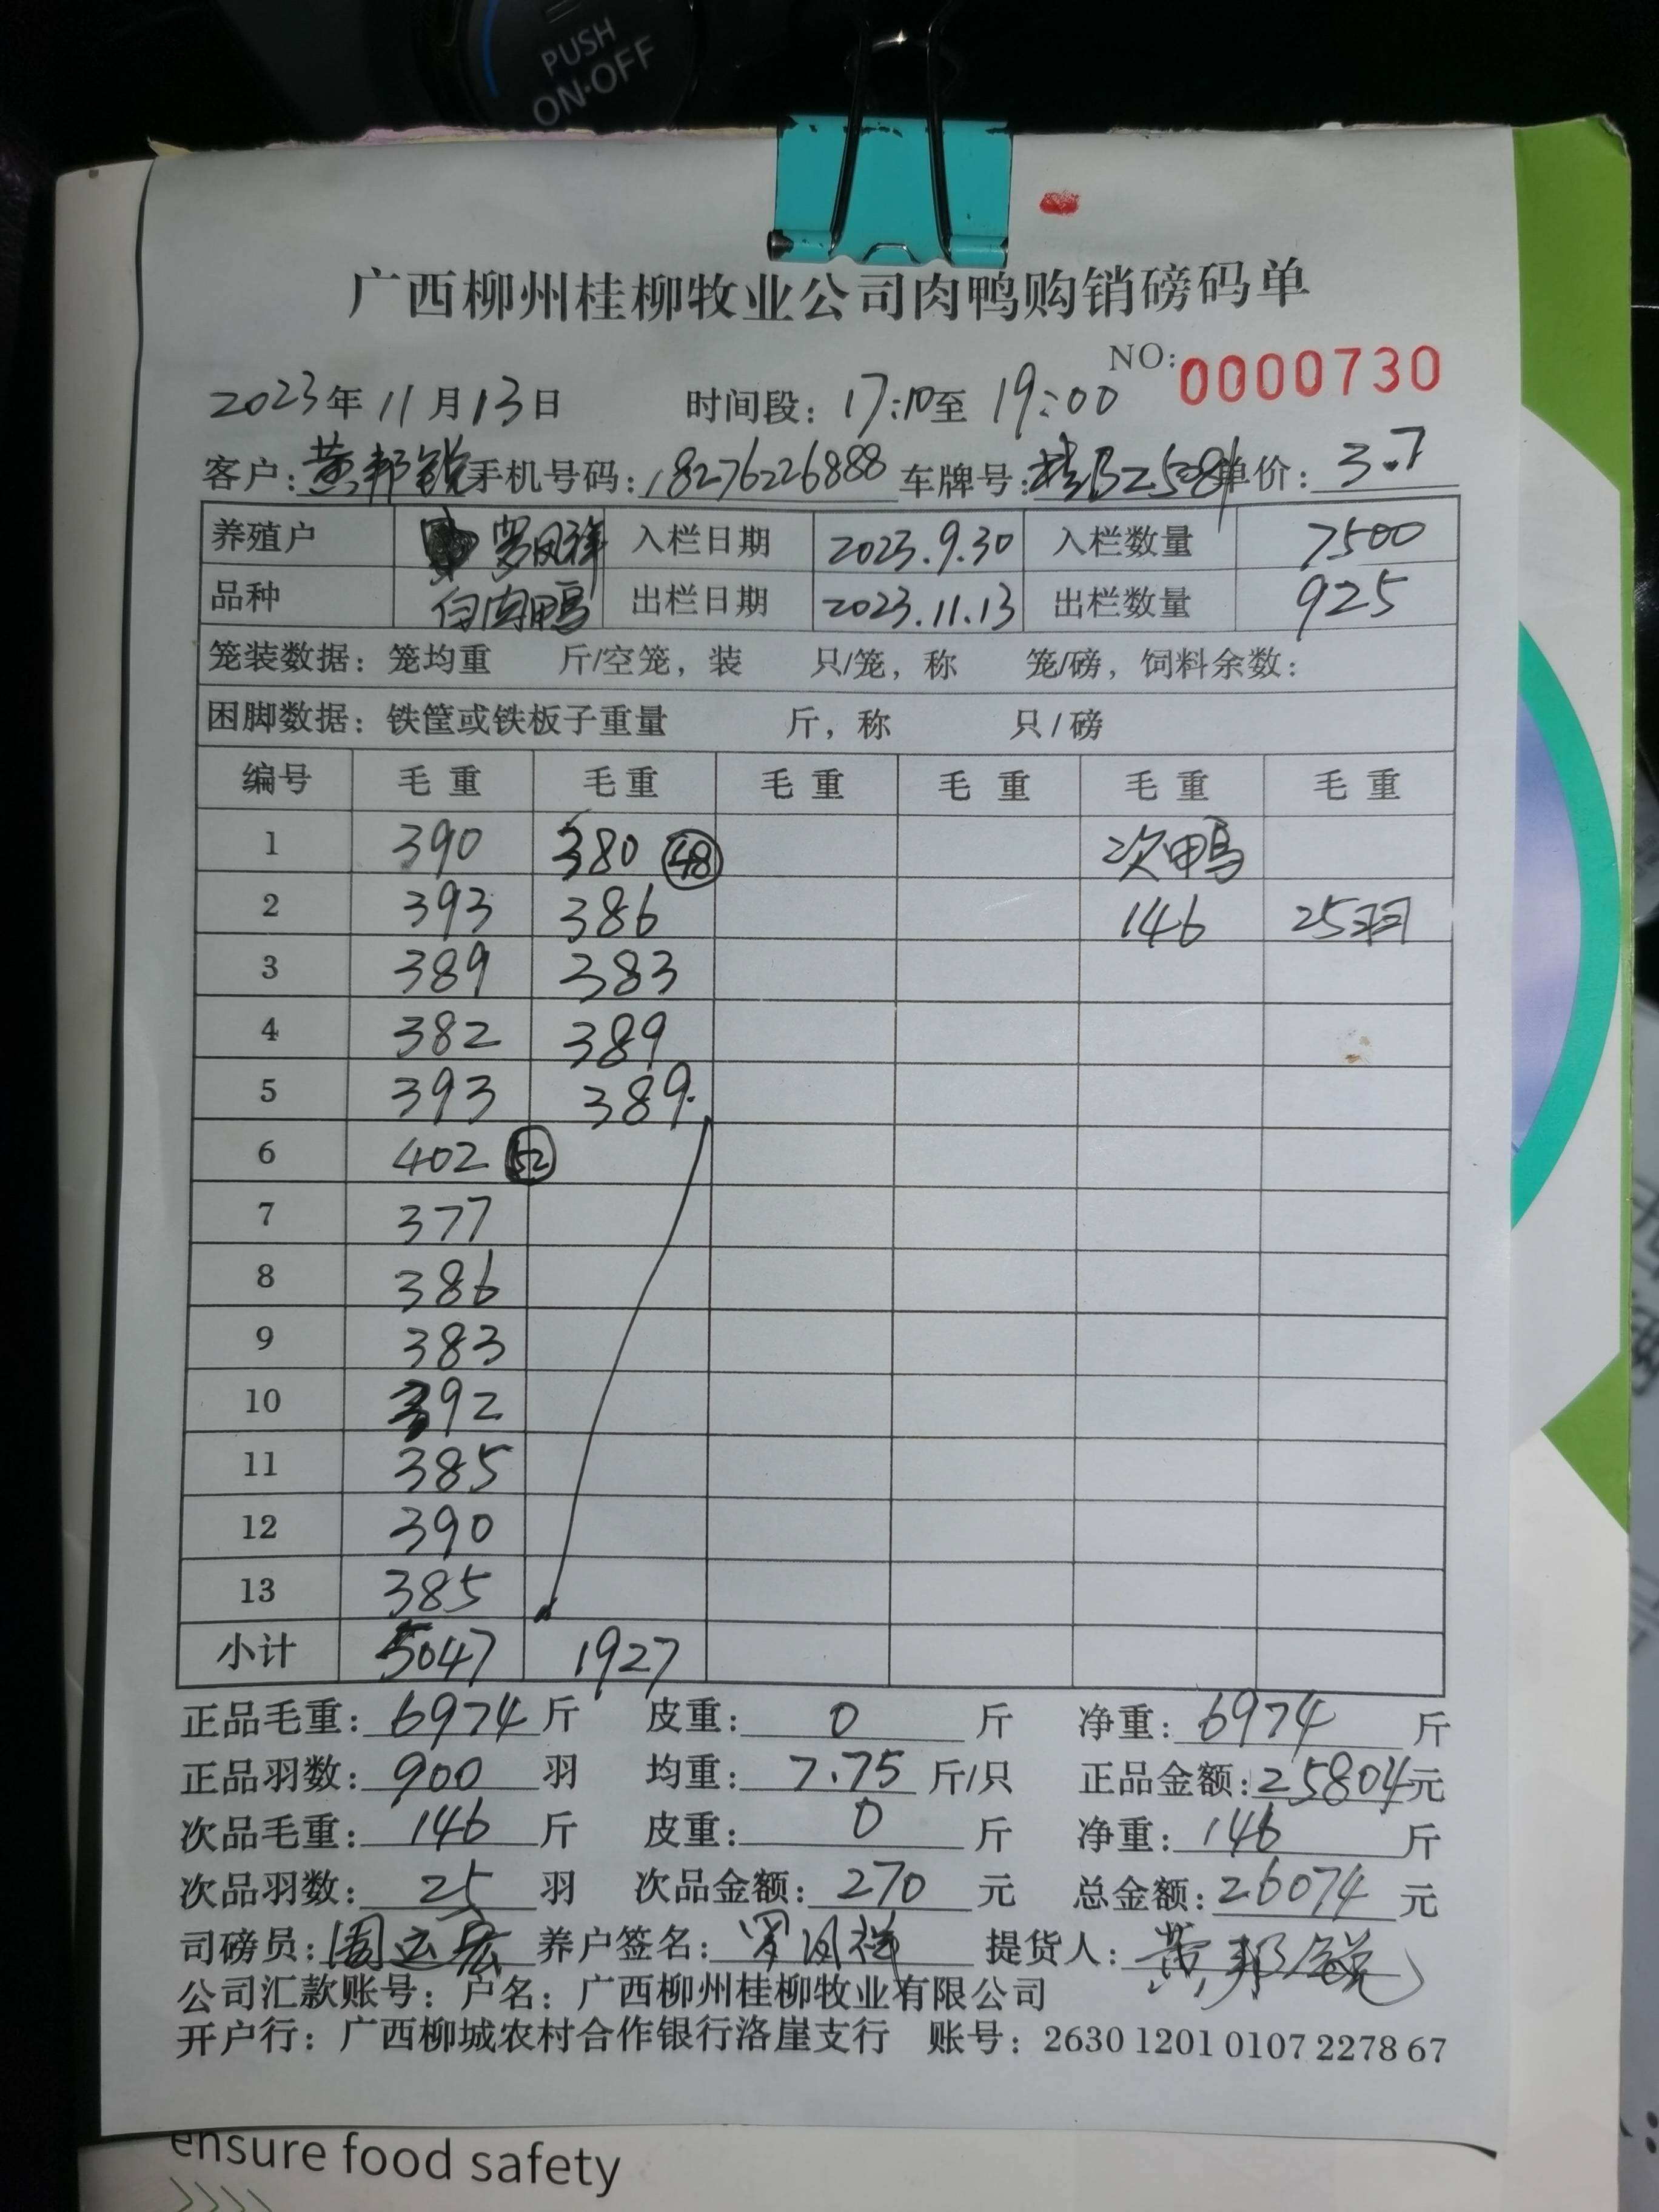 PUSH
ON·OFF
广西柳州桂柳牧业公司肉鸭购销磅码单
NO: 0000730
2023年 11月13日 时间段: 17:10至 19:00
客户: 黄邦锐 手机号码: 18276226888 车牌号: 单价: 3.7
养殖户 罗凤祥 入栏日期 2023.9.30 入栏数量 7500
品种 白肉鸭 出栏日期 2023.11.13 出栏数量 925
笼装数据: 笼均重 斤/空笼, 装 只/笼, 称 笼/磅, 饲料余数:
困脚数据: 铁筐或铁板子重量 斤, 称 只/磅
编号 毛重 毛重 毛重 毛重 毛重 毛重
1 390 380 48 次鸭
2 393 386 146 25羽
3 389 383
4 382 389
5 393 389.
6 402 52
7 377
8 386
9 383
10 392
11 385
12 390
13 385
小计 5047 1927
正品毛重: 6974 斤 皮重: 0 斤 净重: 6974 斤
正品羽数: 900 羽 均重: 7.75 斤/只 正品金额: 25804元
次品毛重: 146 斤 皮重: 0 斤 净重: 146 斤
次品羽数: 25 羽 次品金额: 270 元 总金额: 26074 元
司磅员: 周运宏 养户签名: 罗凤祥 提货人: 黄邦锐
公司汇款账号: 户名: 广西柳州桂柳牧业有限公司
开户行: 广西柳城农村合作银行洛崖支行 账号: 2630 1201 0107 2278 67
ensure food safety